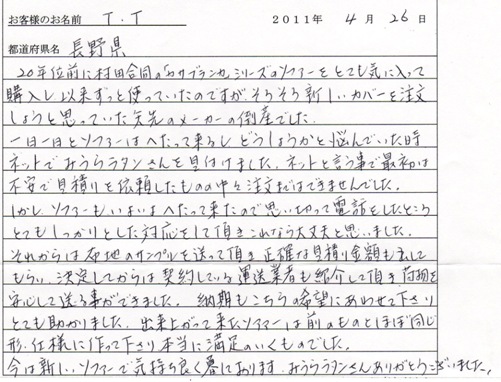 お客様のお名前 T.T 2011年 4月 26日
都道府県名 長野県
20年位前に村田合同のカサブランカシリーズのソファーをとても気に入って
購入し以来ずっと使っていたのですが、そろそろ新しいカバーを注文
しようと思っていた矢先のメーカーの倒産でした。
一日一日とソファーはへたって来るし どうしようかと悩んでいた時
ネットでみうらラタンさんを見付けました。ネットと言う事で最初は
不安で見積りを依頼したものの中々注文まではできませんでした。
しかし ソファーもいよいよへたって来たので思い切って電話をしたところ
とてもしっかりとした対応をして頂きこれなら大丈夫と思いました。
それからは布地のサンプルを送って頂き 正確な見積り金額も出して
もらい、決定してからは契約している運送業者も紹介して頂き 荷物を
安心して送る事ができました。 納期もこちらの希望にあわせて下さり
とても助かりました。出来上がって来たソファーは前のものとほぼ同じ
形・仕様に作って下さり 本当に満足のいくものでした。
今は新しいソファで気持ち良く暮しております。みうらラタンさんありがとうございました。